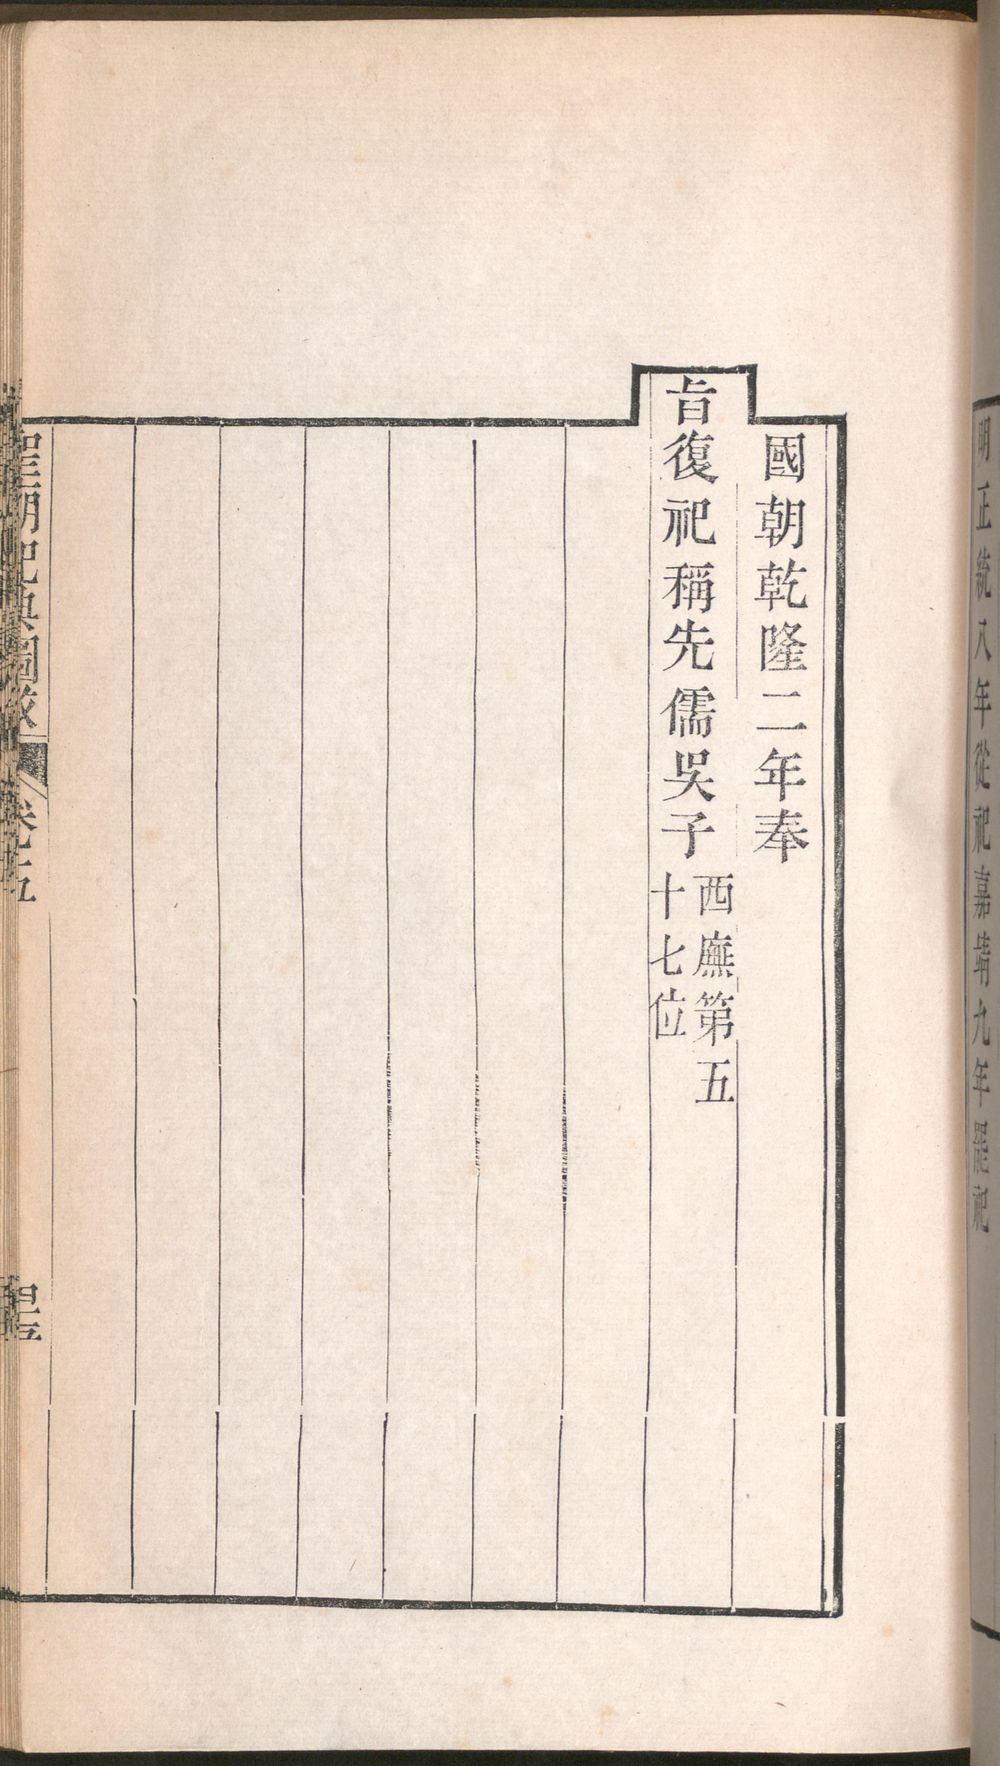 明正統八年從祀嘉靖九年罷祀
國朝乾隆二年奉
旨復祀稱先儒吳子西廡第五
十七位
聖朝祀典圖攷
卷五